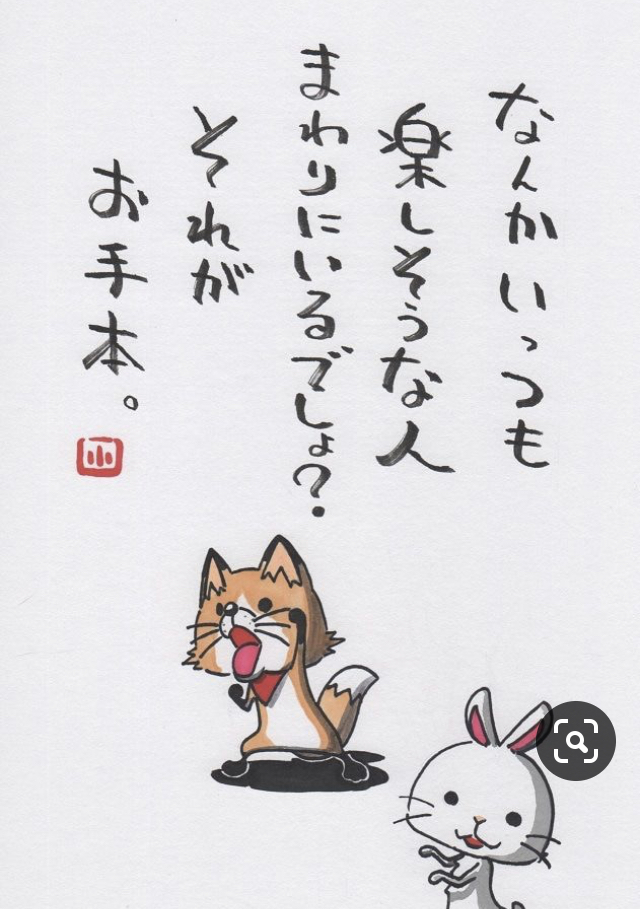 なんかいっつも
楽しそうな人
まわりにいるでしょ?
それが
お手本。
小